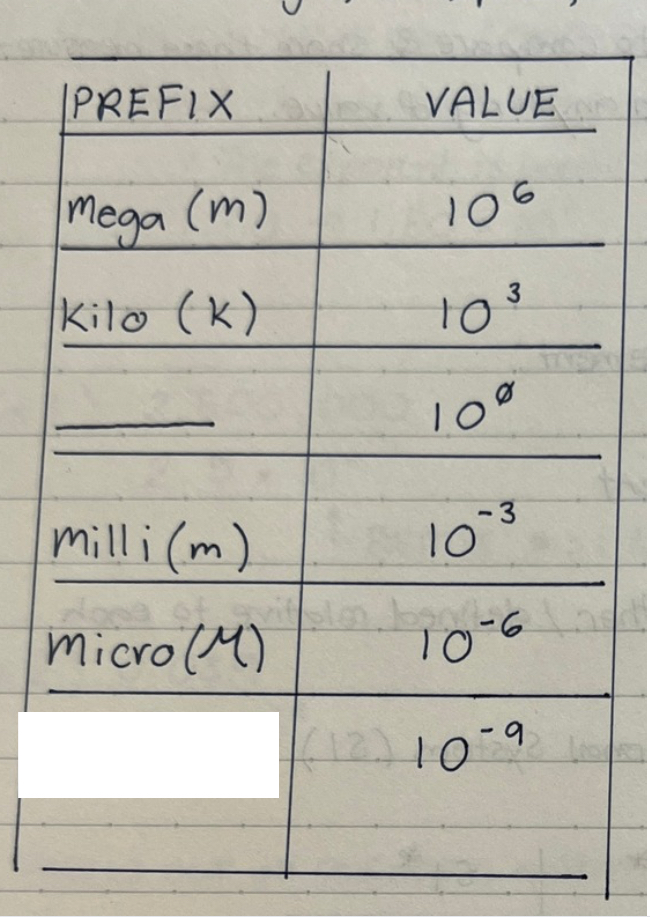 PREFIX VALUE
Mega (m) 10⁶
Kilo (K) 10³
10⁰
Milli (m) 10⁻³
Micro (M) 10⁻⁶
10⁻⁹